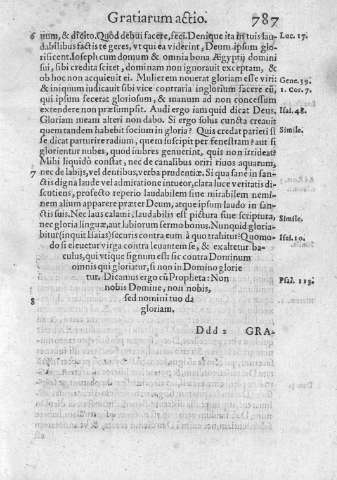 Gratiarum actio. 787
6 num, & dicito. Quòd debui facere, feci. Denique ita in tuis lau- Luc. 17.
dabilibus factis te geres, vt qui ea viderint, Deum ipsum glo-
rificent. Ioseph cum domum & omnia bona Ægyptij domini
sui, sibi credita sciret, dominam non ignorauit exceptam, &
ob hoc non acquieuit ei. Mulierem nouerat gloriam esse viri: Gene. 39.
& iniquum iudicauit sibi vice contraria inglorium facere eū, 1. Cor. 7.
qui ipsum fecerat gloriosum, & manum ad non concessum
extendere non præsumpsit. Audi ergo iam quid dicat Deus. Isai. 48.
Gloriam meam alteri non dabo. Si ergo solus cuncta creauit
quem tandem habebit socium in gloria? Quis credat parieti si Simile.
se dicat parturire radium, quem suscipit per fenestram? aut si
glorientur nubes, quod imbres genuerint, quis non irrideat?
Mihi liquidò constat, nec de canalibus oriri riuos aquarum,
7 nec de labijs, vel dentibus, verba prudentiæ. Si qua sane in san-
ctis digna laude vel admiratione intueor, clara luce veritatis di-
scutiens, profecto reperio laudabilem siue mirabilem nemi-
nem alium apparere præter Deum, atque ipsum laudo in san-
ctis suis. Nec laus calami, laudabilis est pictura siue scriptura, Simile.
nec gloria linguæ, aut labiorum sermo bonus. Nunquid gloria-
bitur (inquit Isaias) securis contra eum à quo trahitur? Quomo- Isai. 10.
do si eleuetur virga contra leuantem se, & exaltetur ba-
culus, qui vtique lignum est: sic contra Dominum
omnis qui gloriatur, si non in Domino glorie
tur. Dicamus ergo cū Propheta: Non Psal. 113.
nobis Domine, non nobis,
8 sed nomini tuo da
gloriam.
Ddd 2 GRA-